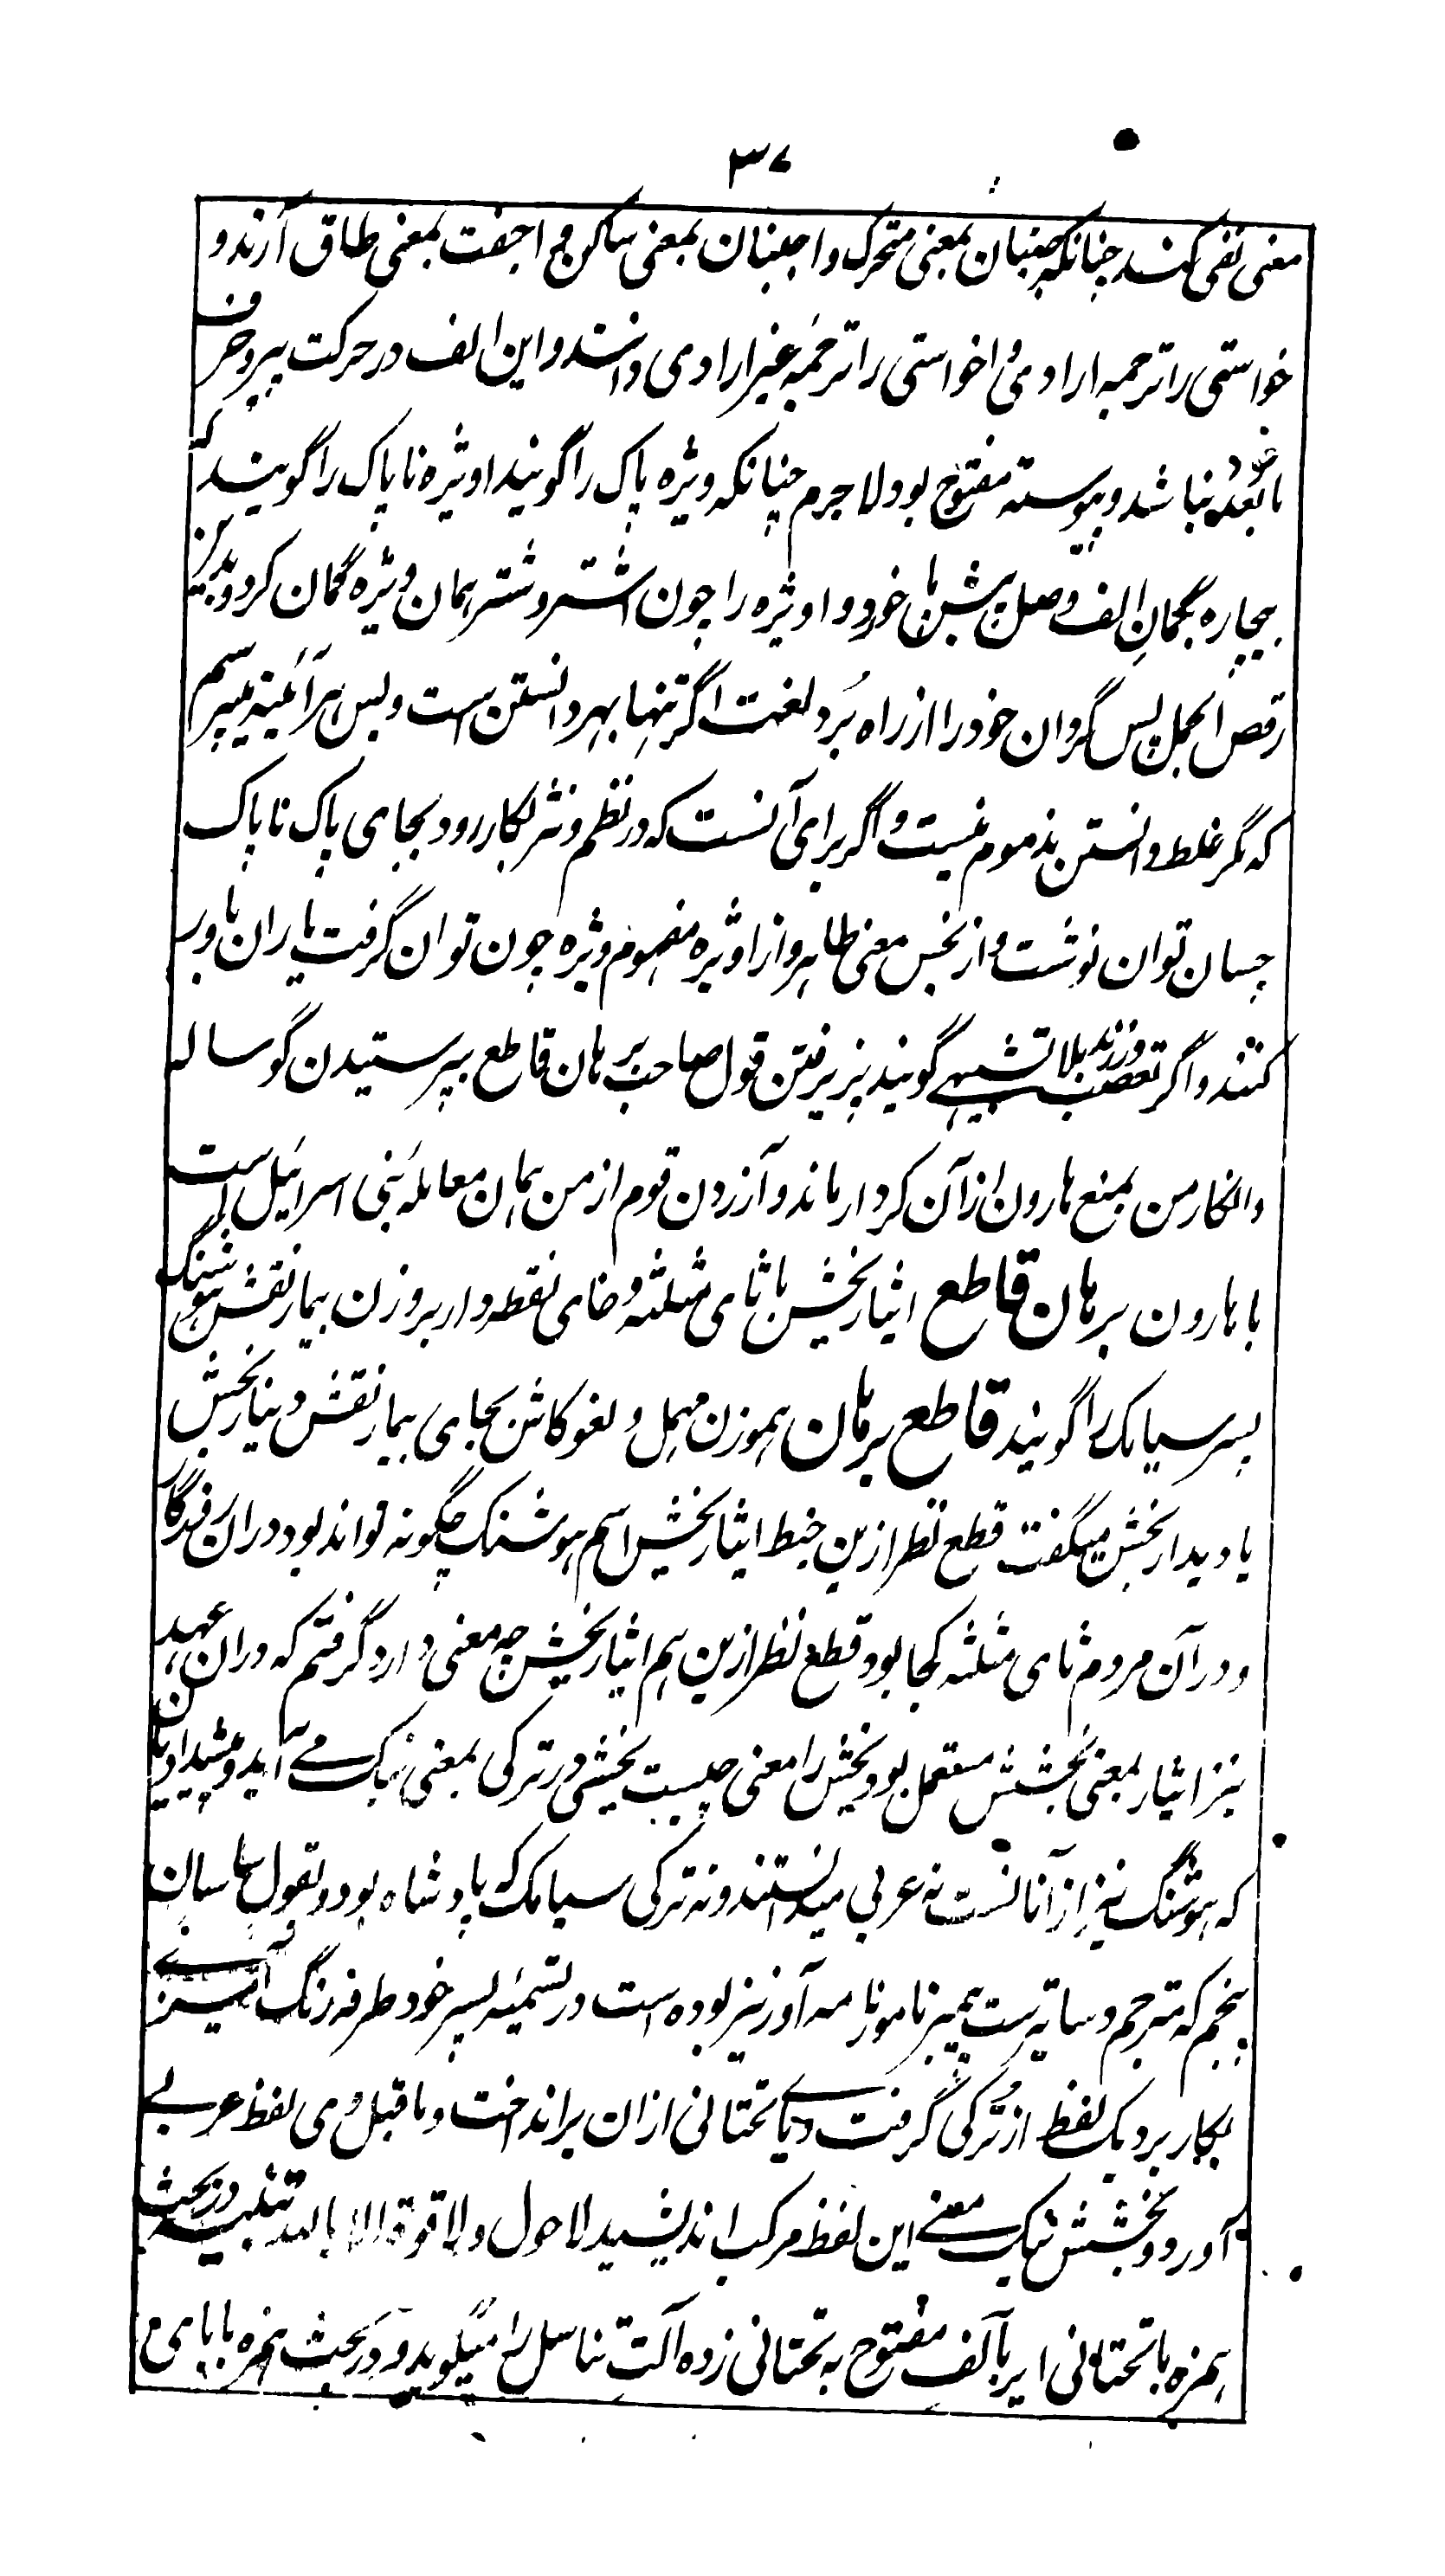 ۳۷
معنی نفی کند چنانکه جنبان بمعنی متحرک و اجنبان بمعنی ساکن و اجفت بمعنی طاق آرند و
خواستی را ترجمه ارادی و اخواستی را ترجمه غیر ارادی دانند و این الف در حرکت پیرو حرف
مابعد خود نباشد و پیوسته مفتوح بود لاجرم چنانکه ویژه پاک را گویند اویژه ناپاک را گویند که
بیچاره بگمانِ الف وصل پیش پا خورد و اویژه را چون اشتر و شتر همان ویژه گمان کرد و بدین
رقص الجمل پس گروان خود را از راه بُرد لغت اگر تنها بهر دانستن است و بس هر آئینه میپرسم
که مگر غلط دانستن مذموم نیست و اگر برای آنست که در نظم و نثر بکار رود بجای پاک ناپاک
چسان توان نوشت و از نجس معنی طاهر و از اویژه مفهوم ویژه چون توان گرفت یاران باور
کنند و اگر تعصب ورزند بلا تشبیهی گویند پذیرفتن قول صاحب برهان قاطع بپرستیدن گوساله
و انکار من بمنع هارون از آن کردار ماند و آزردن قوم از من همان معامله بنی اسرائیل است
با هارون برهان قاطع ایثار بخش با ثای مثلثه و خای نقطه دار بروزن بیمار نقش هوشنگ
پسر سیامک را گویند قاطع برهان هموزن مهمل و لغو کاش بجای بیمار نقش دینار بخش
یا دیدار بخش میگفت قطع نظر ازین خبط ایثار بخش اسم هوشنگ چگونه تواند بود دران روزگار
و در آن مردم ثای مثلثه کجا بود قطع نظر ازین هم ایثار بخش چه معنی دارد گرفتم که دران عهد
نیز ایثار بمعنی بخشش مستعمل بود بخش را معنی چیست بخشی در ترکی بمعنی نیک می آید و پیشدادیان
که هوشنگ نیز از آنانست نه عربی میدانستند و نه ترکی سیامک که پادشاه بود و بقول ساسان
پنجم که مترجم دساتیرست پیمبر نامور نامه آور نیز بوده است در تسمیه پسر خود طرفه رنگ آمیزی
بکار برد یک لفظ از ترکی گرفت و یای تحتانی ازان برانداخت و ماقبل وی لفظ عربی
آورد و بخشش نیک معنی این لفظ مرکب اندیشید لا حول و لا قوة الا بالله تنبیه در بحث
همزه با تحتانی ایر بالف مفتوح به تحتانی زده آلت تناسل را میگوید و در بحث همزه با بای